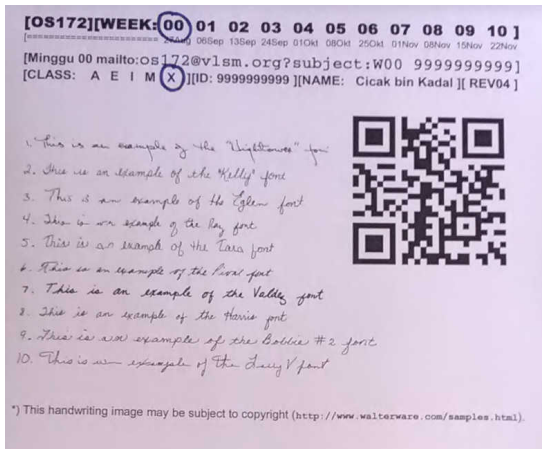 [OS172][WEEK: 00 01 02 03 04 05 06 07 08 09 10 ]
[==================== 27Aug 06Sep 13Sep 24Sep 01Okt 08Okt 25Okt 01Nov 08Nov 15Nov 22Nov
[Minggu 00 mailto:os172@vlsm.org?subject:W00 9999999999]
[CLASS: A E I M X ][ID: 9999999999 ][NAME: Cicak bin Kadal ][ REV04 ]
1. This is an example of the "Hightower" font
2. This is an example of the "Kelly" font
3. This is an example of the Eglen font
4. This is an example of the Ray font
5. This is an example of the Tara font
6. This is an example of the font
7. This is an example of the Valdez font
8. This is an example of the Harris font
9. This is an example of the Bobbie #2 font
10. This is an example of the Larry V font
*) This handwriting image may be subject to copyright (http://www.walterware.com/samples.html).